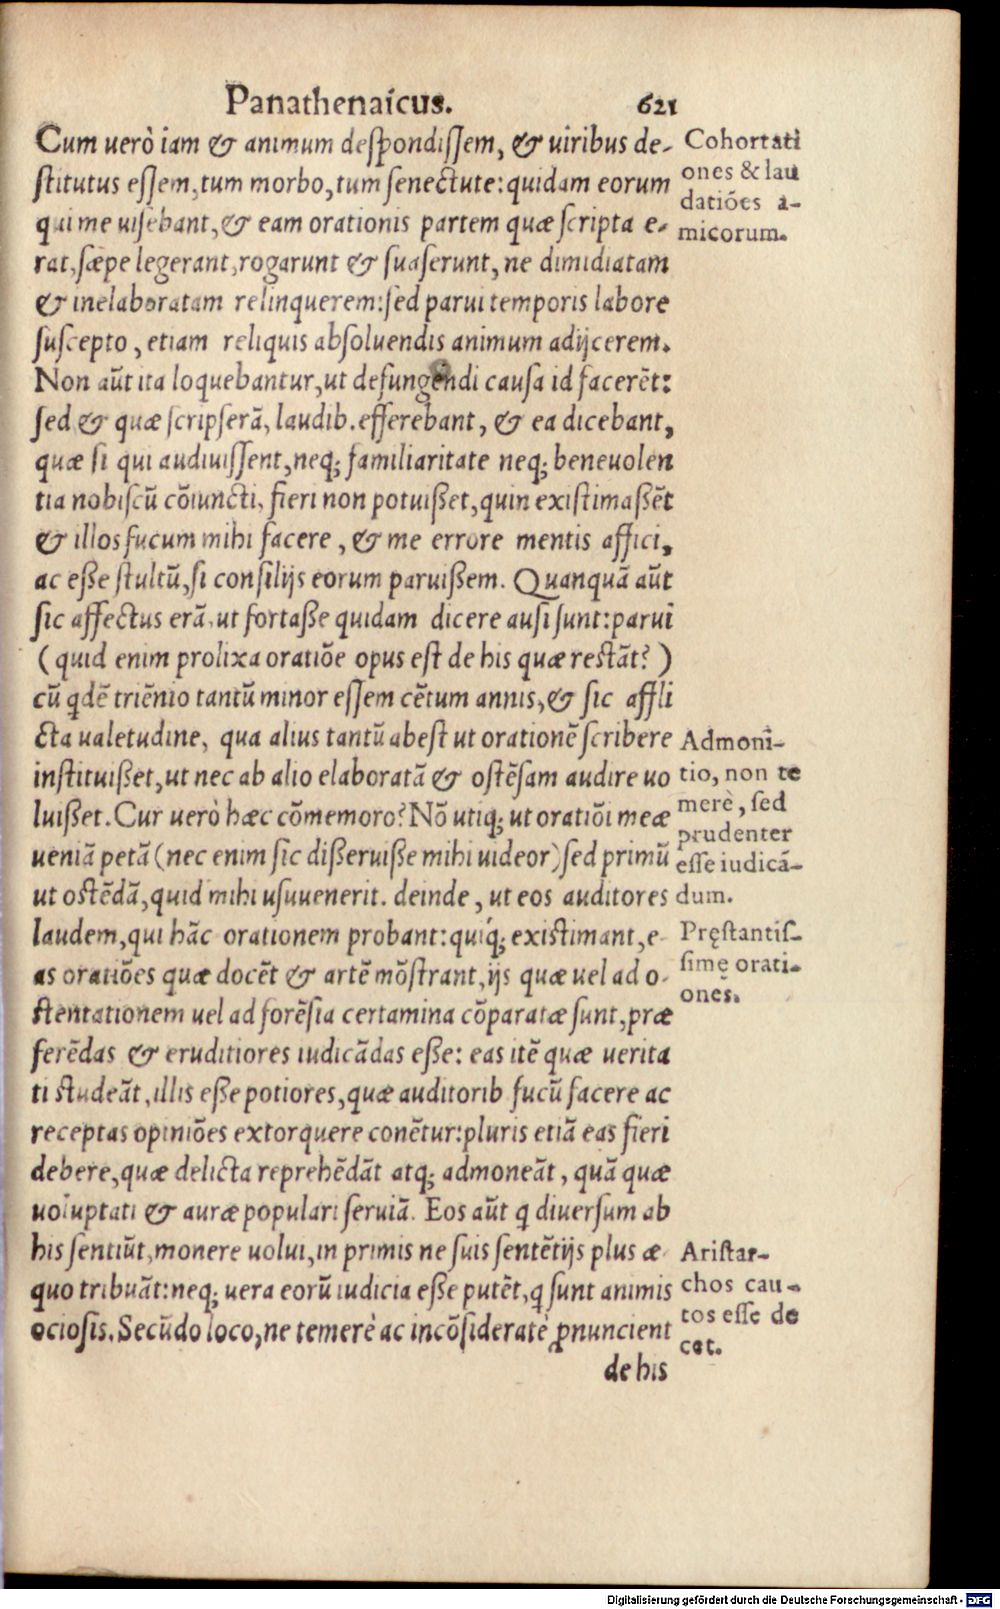 Panathenaicus. 621
Cum uerò iam & animum despondissem, & uiribus de-
stitutus essem, tum morbo, tum senectute: quidam eorum
qui me uisebant, & eam orationis partem quæ scripta e-
rat, sæpe legerant, rogarunt & suaserunt, ne dimidiatam
& inelaboratam relinquerem: sed parui temporis labore
suscepto, etiam reliquis absoluendis animum adijcerem.
Non aūt ita loquebantur, ut defungendi causa id facerēt:
sed & quæ scripserā, laudib. efferebant, & ea dicebant,
quæ si qui audiuissent, neq; familiaritate neq; beneuolen
tia nobiscū cōiuncti, fieri non potuißet, quin existimaßēt
& illos fucum mihi facere, & me errore mentis affici,
ac eße stultū, si consilijs eorum paruißem. Quanquā aūt
sic affectus erā, ut fortaße quidam dicere ausi sunt: parui
(quid enim prolixa oratiōe opus est de his quæ restāt?)
cū qdē triēnio tantū minor essem cētum annis, & sic affli
cta ualetudine, qua alius tantū abest ut orationē scribere
instituißet, ut nec ab alio elaboratā & ostēsam audire uo
luißet. Cur uerò hæc cōmemoro? Nō utiq; ut oratiōi meæ
ueniā petā (nec enim sic dißeruiße mihi uideor) sed primū
ut ostēdā, quid mihi usuuenerit. deinde, ut eos auditores
laudem, qui hāc orationem probant: quiq́; existimant, e-
as oratiōes quæ docēt & artē mōstrant, ijs quæ uel ad o-
stentationem uel ad forēsia certamina cōparatæ sunt, præ
ferēdas & eruditiores iudicādas eße: eas itē quæ uerita
ti studeāt, illis eße potiores, quæ auditorib fucū facere ac
receptas opiniōes extorquere conētur: pluris etiā eas fieri
debere, quæ delicta reprehēdāt atq; admoneāt, quā quæ
uoluptati & auræ populari seruiā. Eos aūt q diuersum ab
his sentiūt, monere uolui, in primis ne suis sentētijs plus æ-
quo tribuāt: neq; uera eorū iudicia eße putēt, q sunt animis
ociosis. Secūdo loco, ne temerè ac incōsideratè ꝓnuncient
de his
Cohortati
ones & lau
datiōes a-
micorum.
Admoni-
tio, non te
merè, sed
prudenter
esse iudicā-
dum.
Pręstantis-
simę orati-
ones.
Aristar-
chos cau-
tos esse de
cet.
Digitalisierung gefördert durch die Deutsche Forschungsgemeinschaft - DFG